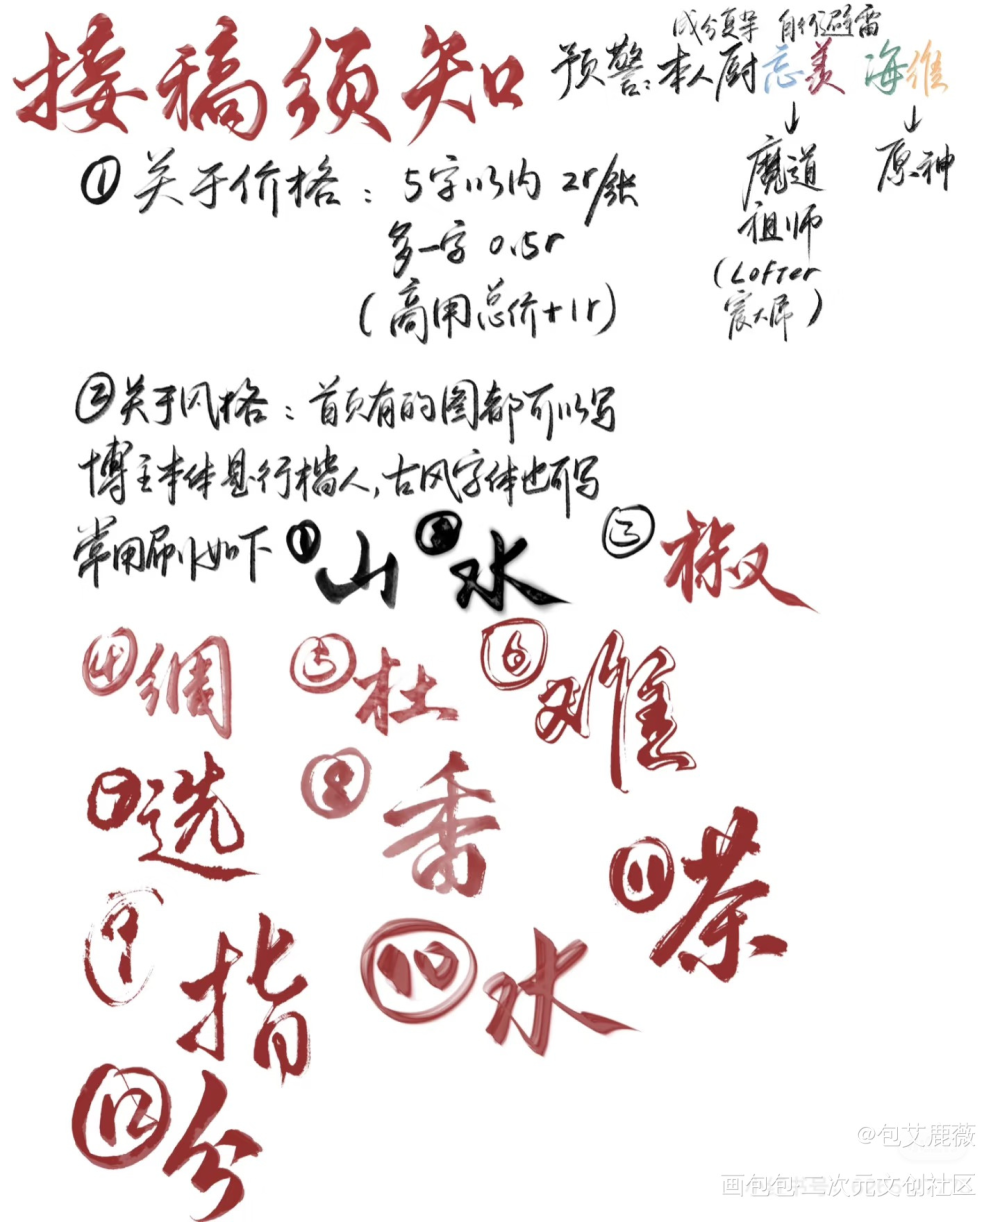 接稿须知
成分复杂 自行避雷
预警：本人厨忘羡 海维
↓ ↓
魔道祖师 原神
(Lofter
宸大帝)
①关于价格：5字以内 2r/张
多一字 0.5r
(商用总价+1r)
②关于风格：首页有的图都可以写
博主本体是行楷人,古风字体也可写
常用刷如下 ①山 ②水 ③椒
④绸 ⑤杜 ⑥难
⑦选 ⑧香
⑪茶
⑨指 ⑩水
⑫分
@包艾鹿薇
画包包·二次元文创社区